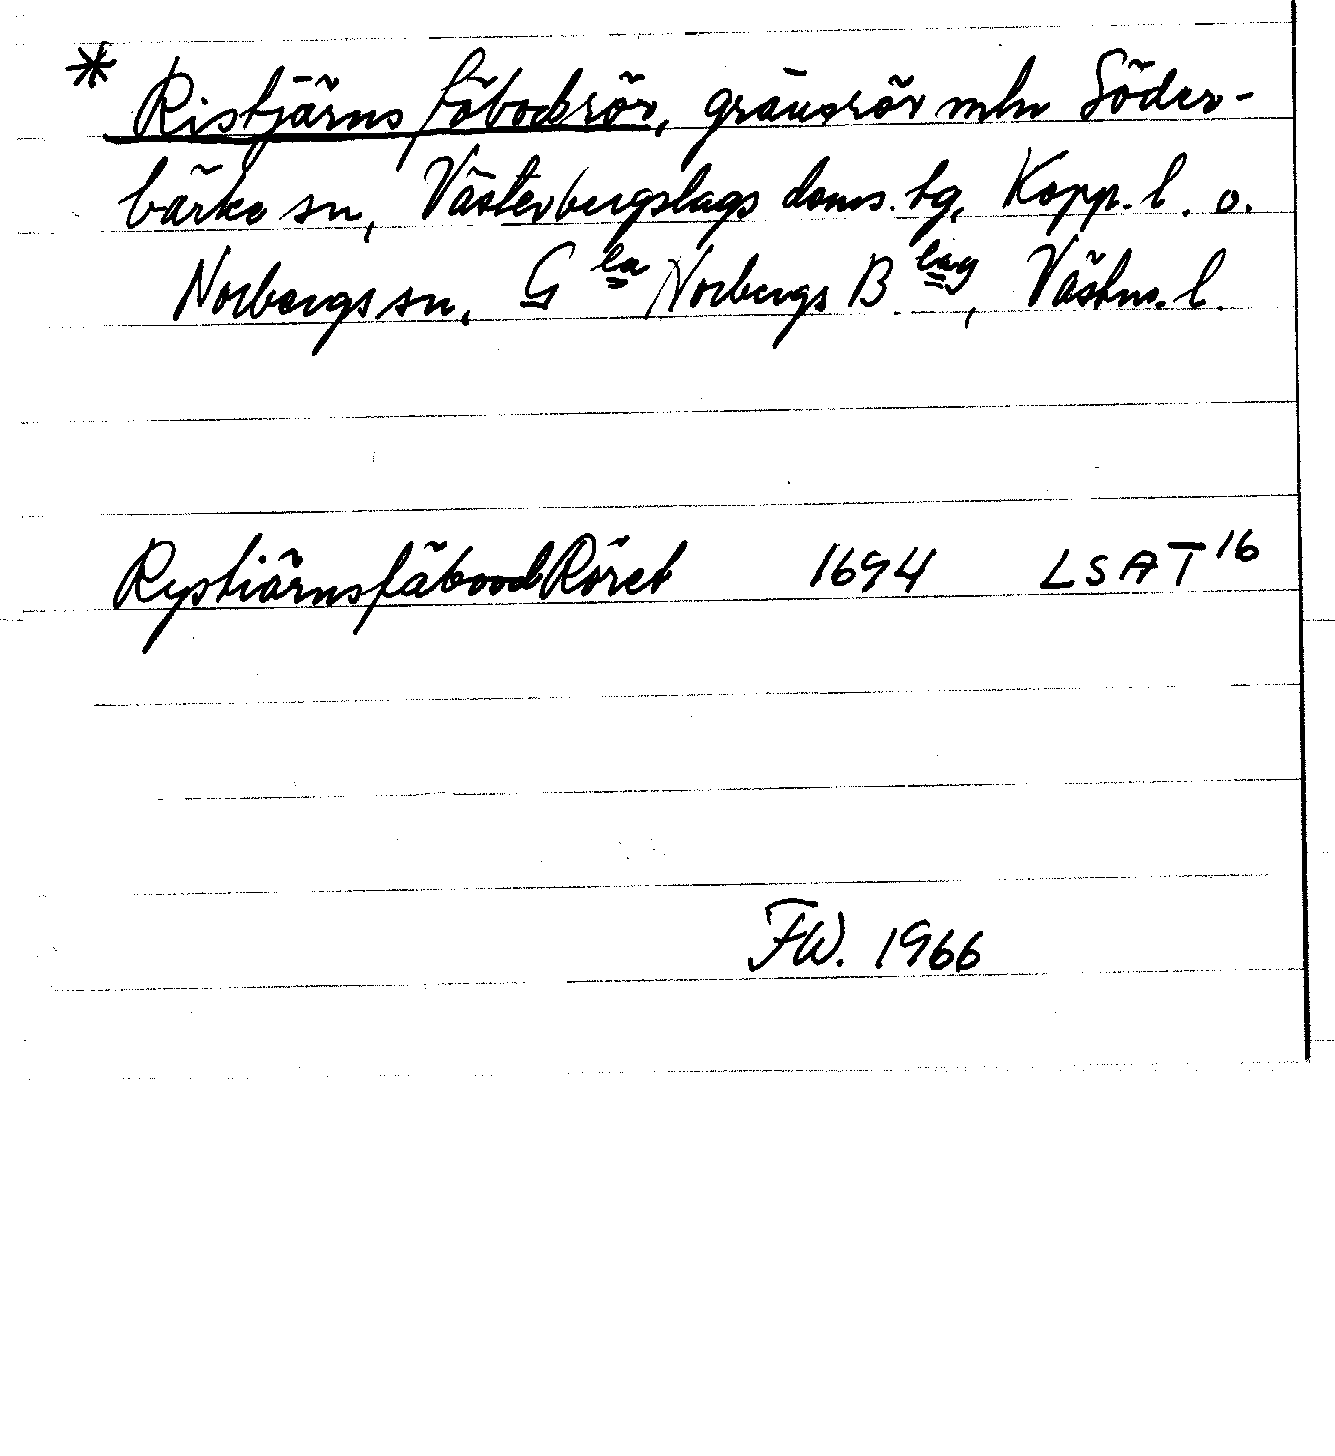 * Ristjärns fäbodsrör, gränsrör mln Söder-
bärke sn, Västerbergslags doms. tg, Kopp. l. o.
Norbergs sn, G la Norbergs B lag, Västm. l.
RystiärnsfäboodRöret 1694 LSA T 16
FW. 1966